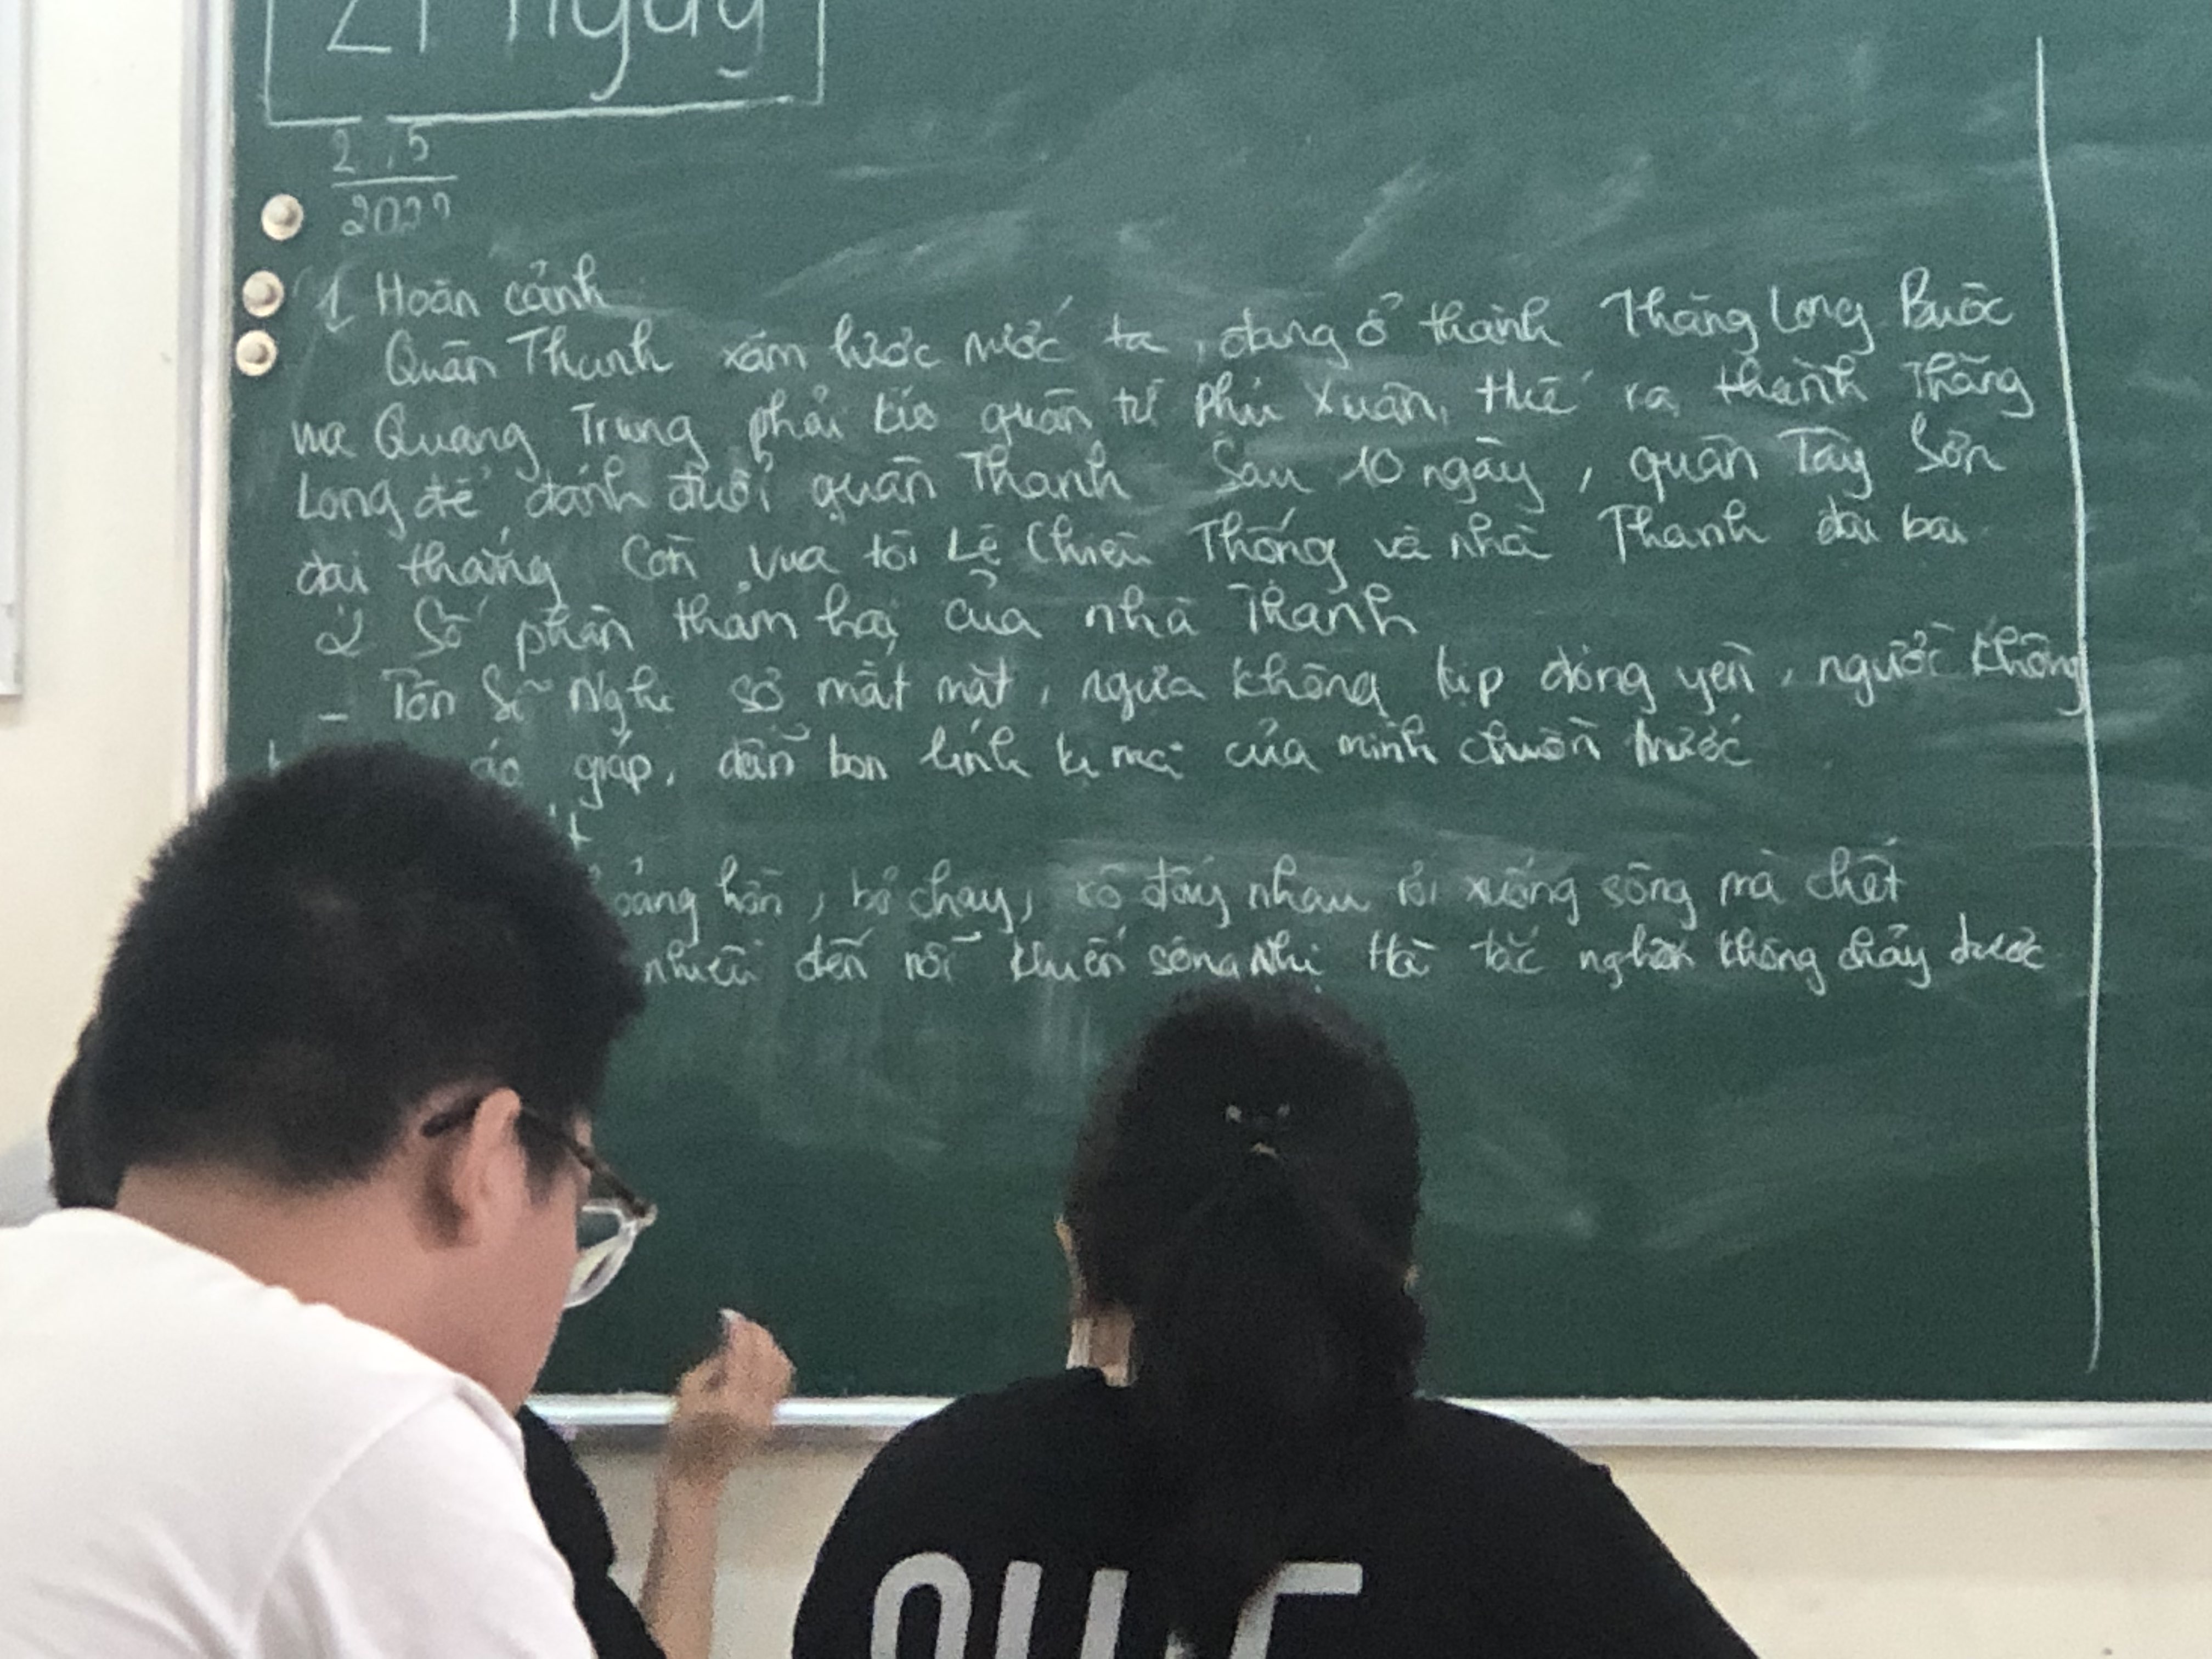 21 ngày
2 / 5
202
1 Hoàn cảnh
Quân Thanh xâm lược nước ta, đang ở thành Thăng Long Buộc
mà Quang Trung phải kéo quân từ Phú Xuân, Huế ra thành Thăng
Long để đánh đuổi quân Thanh Sau 10 ngày, quân Tây Sơn
đại thắng Còn vua tôi Lê Chiêu Thống và nhà Thanh đại bại
2 Số phận thảm hại của nhà Thanh
- Tôn Sĩ Nghị sợ mất mật, ngựa không kịp đóng yên, người không
áo giáp, dẫn bọn lính kị mã của mình chuồn trước
hồn, bỏ chạy, xô đẩy nhau rơi xuống sông mà chết
nhiều đến nỗi khiến sông Nhị Hà tắc nghẽn không chảy được